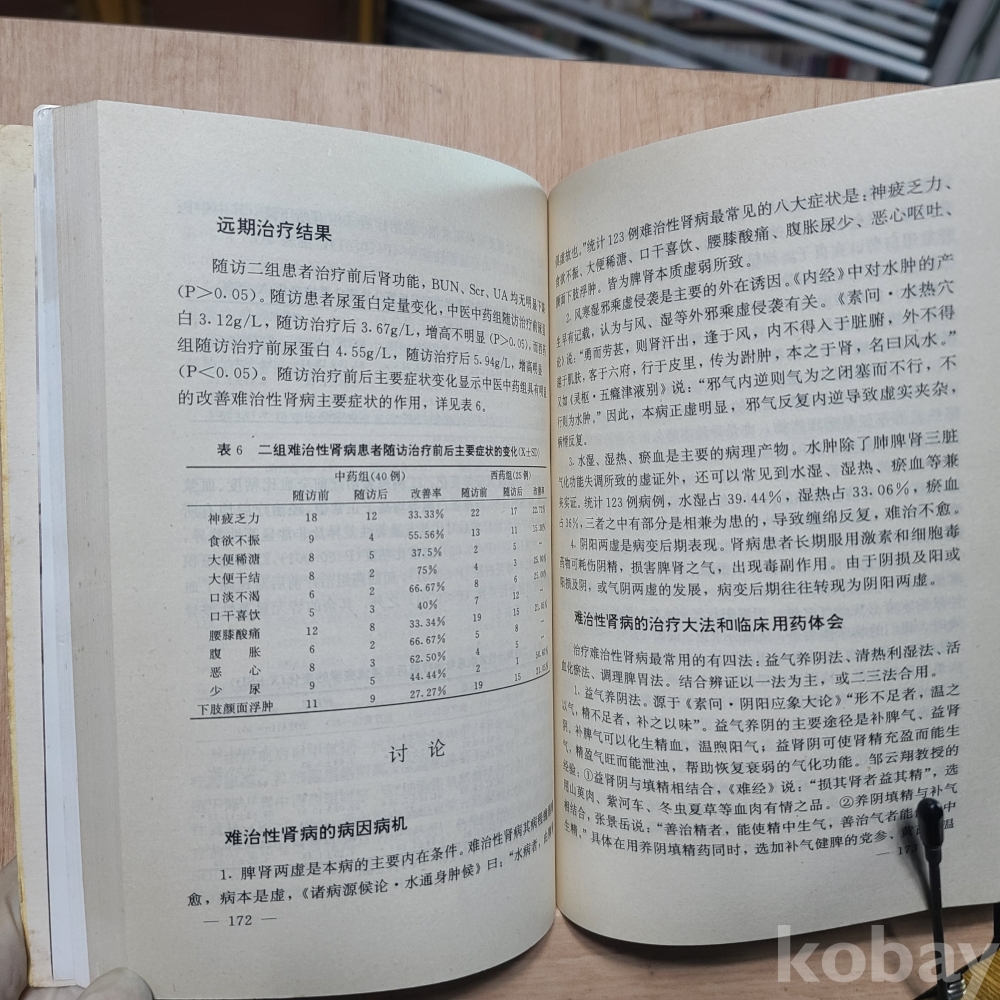 远期治疗结果
随访二组患者治疗前后肾功能，BUN、Scr、UA 均无明显下降
(P＞0.05)。随访患者尿蛋白定量变化，中医中药组随访治疗前尿蛋
白 3.12g/L，随访治疗后 3.67g/L，增高不明显 (P＞0.05)，而西药
组随访治疗前尿蛋白 4.55g/L，随访治疗后 5.94g/L，增高明显
(P＜0.05)。随访治疗前后主要症状变化显示中医中药组具有明显
的改善难治性肾病主要症状的作用，详见表 6。
表 6 二组难治性肾病患者随访治疗前后主要症状的变化(X±SD)
中药组(40 例) 西药组(25 例)
随访前 随访后 改善率 随访前 随访后 改善率
神疲乏力 18 12 33.33% 22 17 22.72%
食欲不振 9 4 55.56% 13 11
大便稀溏 8 5 37.5% 2 5 —
大便干结 8 2 75% 4 3 25.00%
口淡不渴 6 2 66.67% 8 6 25.00%
口干喜饮 5 3 40% 7 12 —
腰膝酸痛 12 8 33.34% 19 15
腹 胀 6 2 66.67% 5 8 —
恶 心 8 3 62.50% 4 5 —
少 尿 9 5 44.44% 2 1
下肢颜面浮肿 11 9 27.27% 19 15
讨 论
难治性肾病的病因病机
1. 脾肾两虚是本病的主要内在条件。难治性肾病其病程缠绵
愈，病本是虚，《诸病源候论·水通身肿候》曰："水病者，
— 172 —
虚故也。"统计 123 例难治性肾病最常见的八大症状是：神疲乏力、
食欲不振、大便稀溏、口干喜饮、腰膝酸痛、腹胀尿少、恶心呕吐、
面下肢浮肿。皆为脾肾本质虚弱所致。
2. 风寒湿邪乘虚侵袭是主要的外在诱因。《内经》中对水肿的产
生早有记载，认为与风、湿等外邪乘虚侵袭有关。《素问·水热穴
论》说："勇而劳甚，则肾汗出，逢于风，内不得入于脏腑，外不得
越于肌肤，客于六府，行于皮里，传为跗肿，本之于肾，名曰风水。"
又如《灵枢·五癃津液别》说："邪气内逆则气为之闭塞而不行，不
行则为水肿。"因此，本病正虚明显，邪气反复内逆导致虚实夹杂，
病情反复。
3. 水湿、湿热、瘀血是主要的病理产物。水肿除了肺脾肾三脏
气化功能失调所致的虚证外，还可以常见到水湿、湿热、瘀血等兼
夹实证。统计 123 例病例，水湿占 39.44%，湿热占 33.06%，瘀血
占 16%，三者之中有部分是相兼为患的，导致缠绵反复，难治不愈。
4. 阴阳两虚是病变后期表现。肾病患者长期服用激素和细胞毒
药物可耗伤阴精，损害脾肾之气，出现毒副作用。由于阴损及阳或
阳损及阴，或气阴两虚的发展，病变后期往往转现为阴阳两虚。
难治性肾病的治疗大法和临床用药体会
治疗难治性肾病最常用的有四法：益气养阴法、清热利湿法、活
血化瘀法、调理脾胃法。结合辨证以一法为主，或二三法合用。
1. 益气养阴法。源于《素问·阴阳应象大论》"形不足者，温之
以气，精不足者，补之以味"。益气养阴的主要途径是补脾气、益肾
阴，补脾气可以化生精血，温煦阳气；益肾阴可使肾精充盈而能生
气，精盈气旺而能泄浊，帮助恢复衰弱的气化功能。邹云翔教授的
经验：①益肾阴与填精相结合，《难经》说："损其肾者益其精"，选
用山萸肉、紫河车、冬虫夏草等血肉有情之品。②养阴填精与补气
相结合，张景岳说："善治精者，能使精中生气，善治气者能 中
生精。"具体在用养阴填精药同时，选加补气健脾的党参、黄 温
— 173
kobay